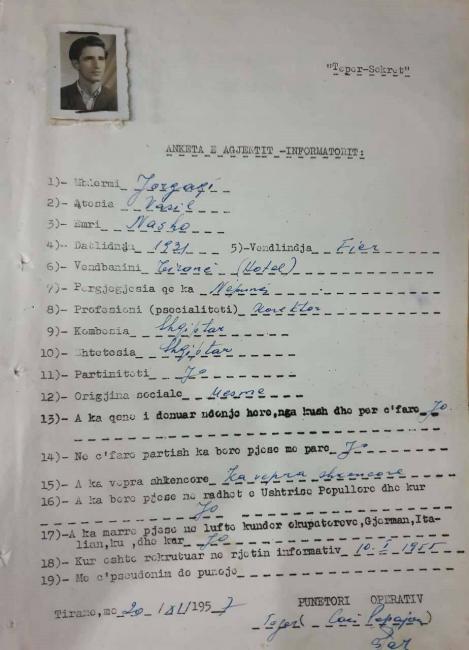 "Teper-Sekret"
ANKETA E AGJENTIT -INFORMATORIT:
1)- Mbiemri Jorgaqi
2)- Atesia Vasil
3)- Emri Nasho
4)- Datlidnja 1931 5)-Vendlindja Fier
6)- Vendbanini Tiranë (Hotel)
7)- Pergjegjesia qe ka Nepunës
8)- Profesioni (psocialiteti) Korektor
9)- Kombesia Shqiptar
10)- Shtetesia Shqiptar
11)- Partiniteti Jo
12)- Origjina sociale Mesme
13)- A ka qene i denuar ndonje here,nga kush dhe per c'fare Jo
14)- Ne c'fare partish ka bere pjese me pare Jo
15)- A ka vepra shkencore Ka vepra shkencore
16)- A ka bere pjese ne radhet e Ushtrise Popullore dhe kur
Jo
17)-A ka marre pjese ne lufte kunder okupatoreve,Gjerman,Ita-
lian,ku ,dhe kur Jo
18)- Kur eshte rekrutuar ne rjetin informativ 10-I-1955
19)- Me c'pseudonim do punoje
Tirane,me 20 /XI/1957 PUNETORI OPERATIV